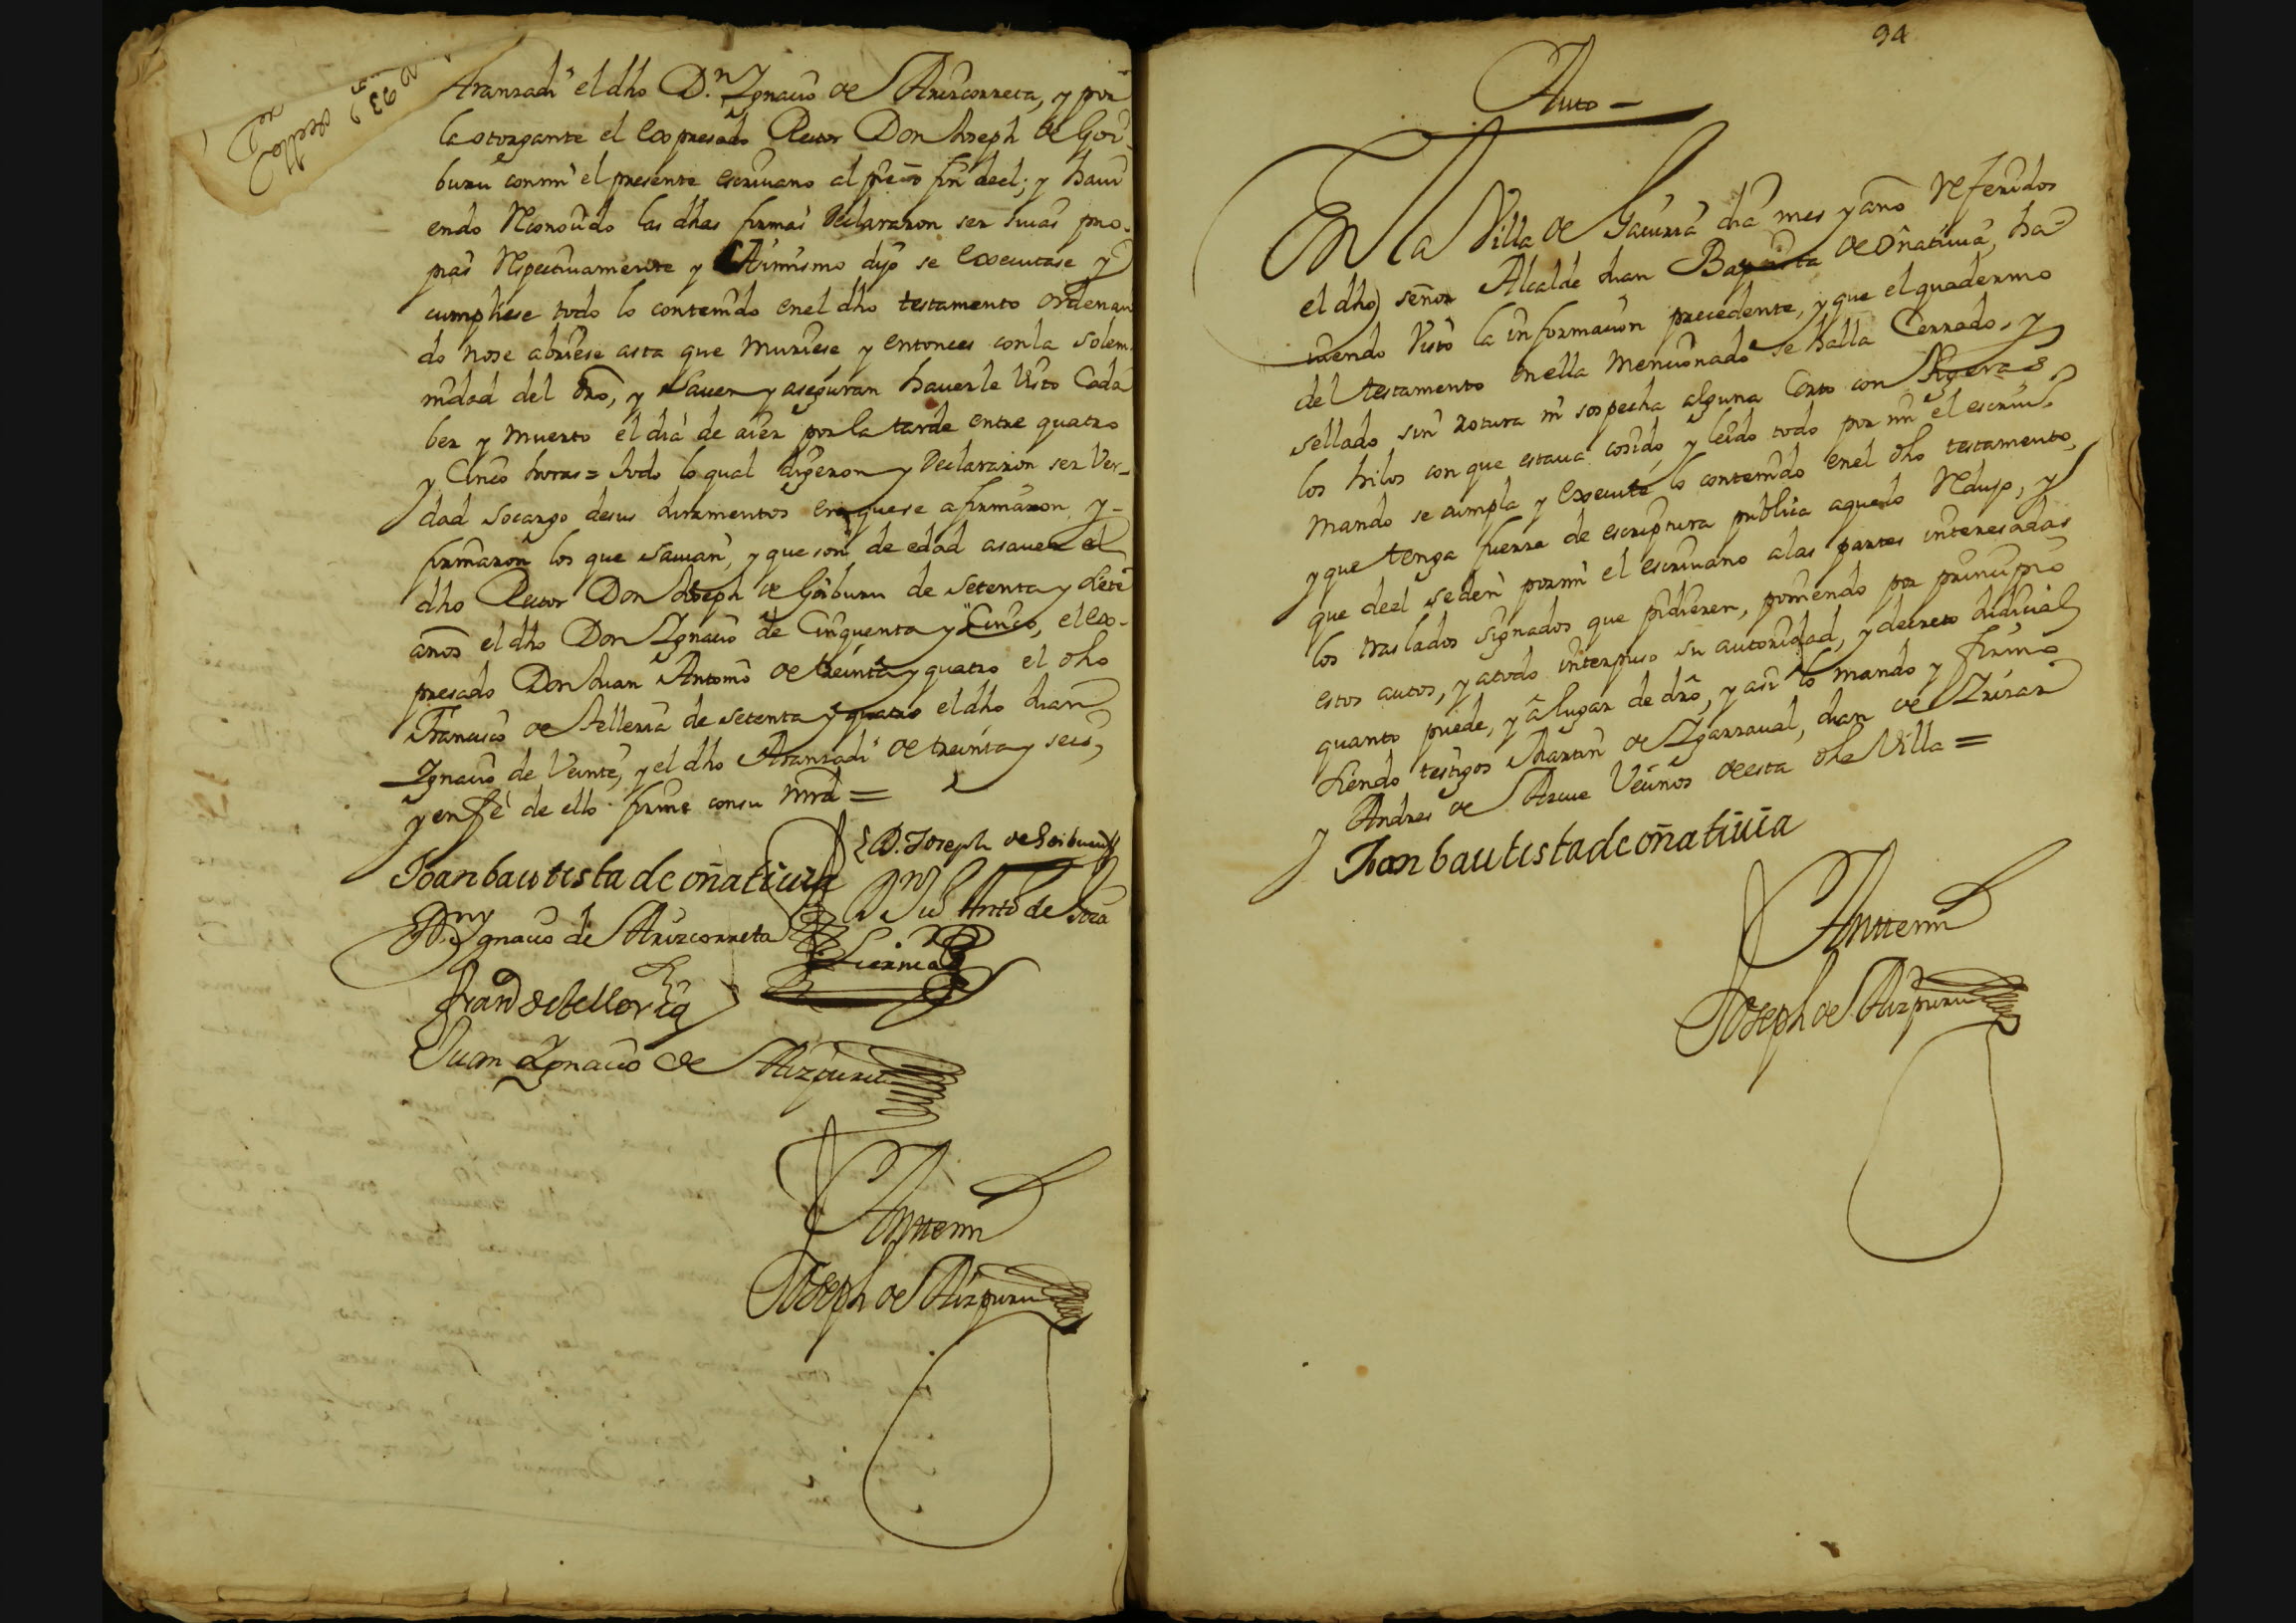 Aranzadi el dho D.n Ygnacio de Arizcorreta, y por
la otorgante el Expresado Rector Don Joseph de Goi
buru conmi el presente escrivano al pie o fin deel; y havi
endo Reconocido las dhas firmas Declararon ser suias pro-
pias Respectivamente y Asimismo dijo se Executase y
cumpliese todo lo contenido enel dho testamento ordenan
do nose abriese asta que Muriese y entonces con la solem
nidad del dro, y Saven y aseguran haverle Visto Cada
ber y Muerto el dia de aier por la tarde entre quatro
y Cinco horas = todo lo qual digeron y Declararon ser Ver-
dad socargo desus Juramentos en que se afirmaron, y -
firmaron los que savian, y que son de edad asaver el
dho Rector Don Joseph de Goiburu de Setenta y Siete
años el dho Don Ygnacio de Cinquenta y Cinco, el ex-
presado Don Juan Antonio de treinta y quatro el dho
Francisco de Telleria de setenta y quatro el dho Juan
Ygnacio de Veinte, y el dho Aranzadi de treinta y seis,
y en fè de ello firmè con su mrd =
D. Joseph de Goiburu
Joan bautista de oñativia
D.n Ju Anto de
D.n Ygnacio de Arizcorreta
Fran de telleria
Juan Ygnacio de Aizpuru
Antte mi
Joseph de Aizpuru
94
Auto -
En la Villa de Gaviria dia mes y año Referidos
el dho señor Alcalde Juan Baptista de oñativia, ha-
viendo Visto la informacion precedente, y que el quaderno
del testamento en ella Mencionado se halla Cerrado, y
sellado sin rotura ni sospecha alguna Corto con tigeras
los hilos con que estava cosido, y leido todo por mi el escriv.o
Mando se cumpla y Execute lo contenido enel dho testamento,
y que tenga fuerza de escriptura publica aquedo Redujo, y
que deel seden por mi el escrivano alas partes interesadas
los traslados signados que pidieren, poniendo por principio
estos autos, y atodo interpuso su autoridad, y decreto Judicial
quanto puede, y â lugar de drô, y asi lo mando y firmo
Siendo testigos Martin de Ygarzaval, Juan de Yrizar
y Andres de Arcue Vecinos de esta dha Villa =
Joan bautista de oñativia
Antte mi
Joseph de Aizpuru